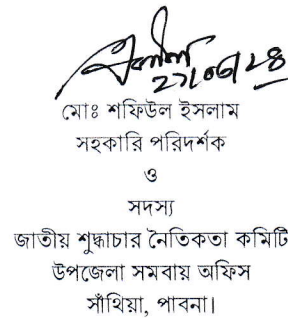 মোঃ শফিউল ইসলাম
সহকারি পরিদর্শক
ও
সদস্য
জাতীয় শুদ্ধাচার নৈতিকতা কমিটি
উপজেলা সমবায় অফিস
সাঁথিয়া, পাবনা।